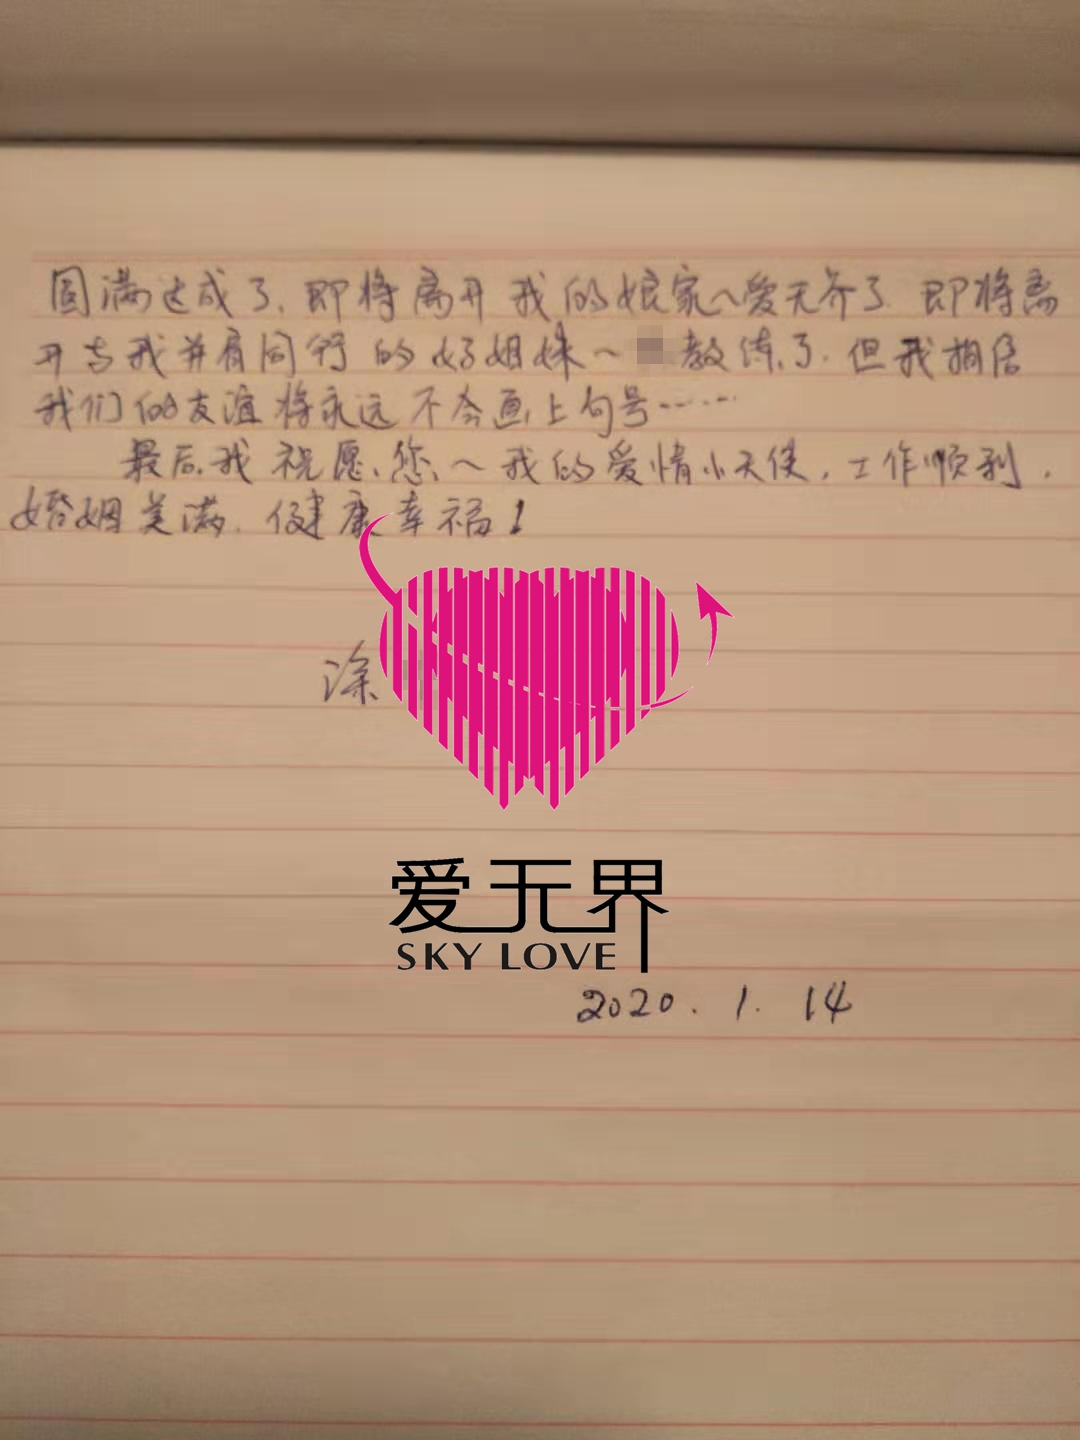 圆满达成了，即将离开我的娘家～爱无界了．即将离
开与我并肩同行的好姐妹～教练了．但我相信
我们的友谊将永远不会画上句号……
最后，我祝愿您～我的爱情小天使，工作顺利，
婚姻美满，健康幸福！
涂
爱无界
SKY LOVE
2020．1．14